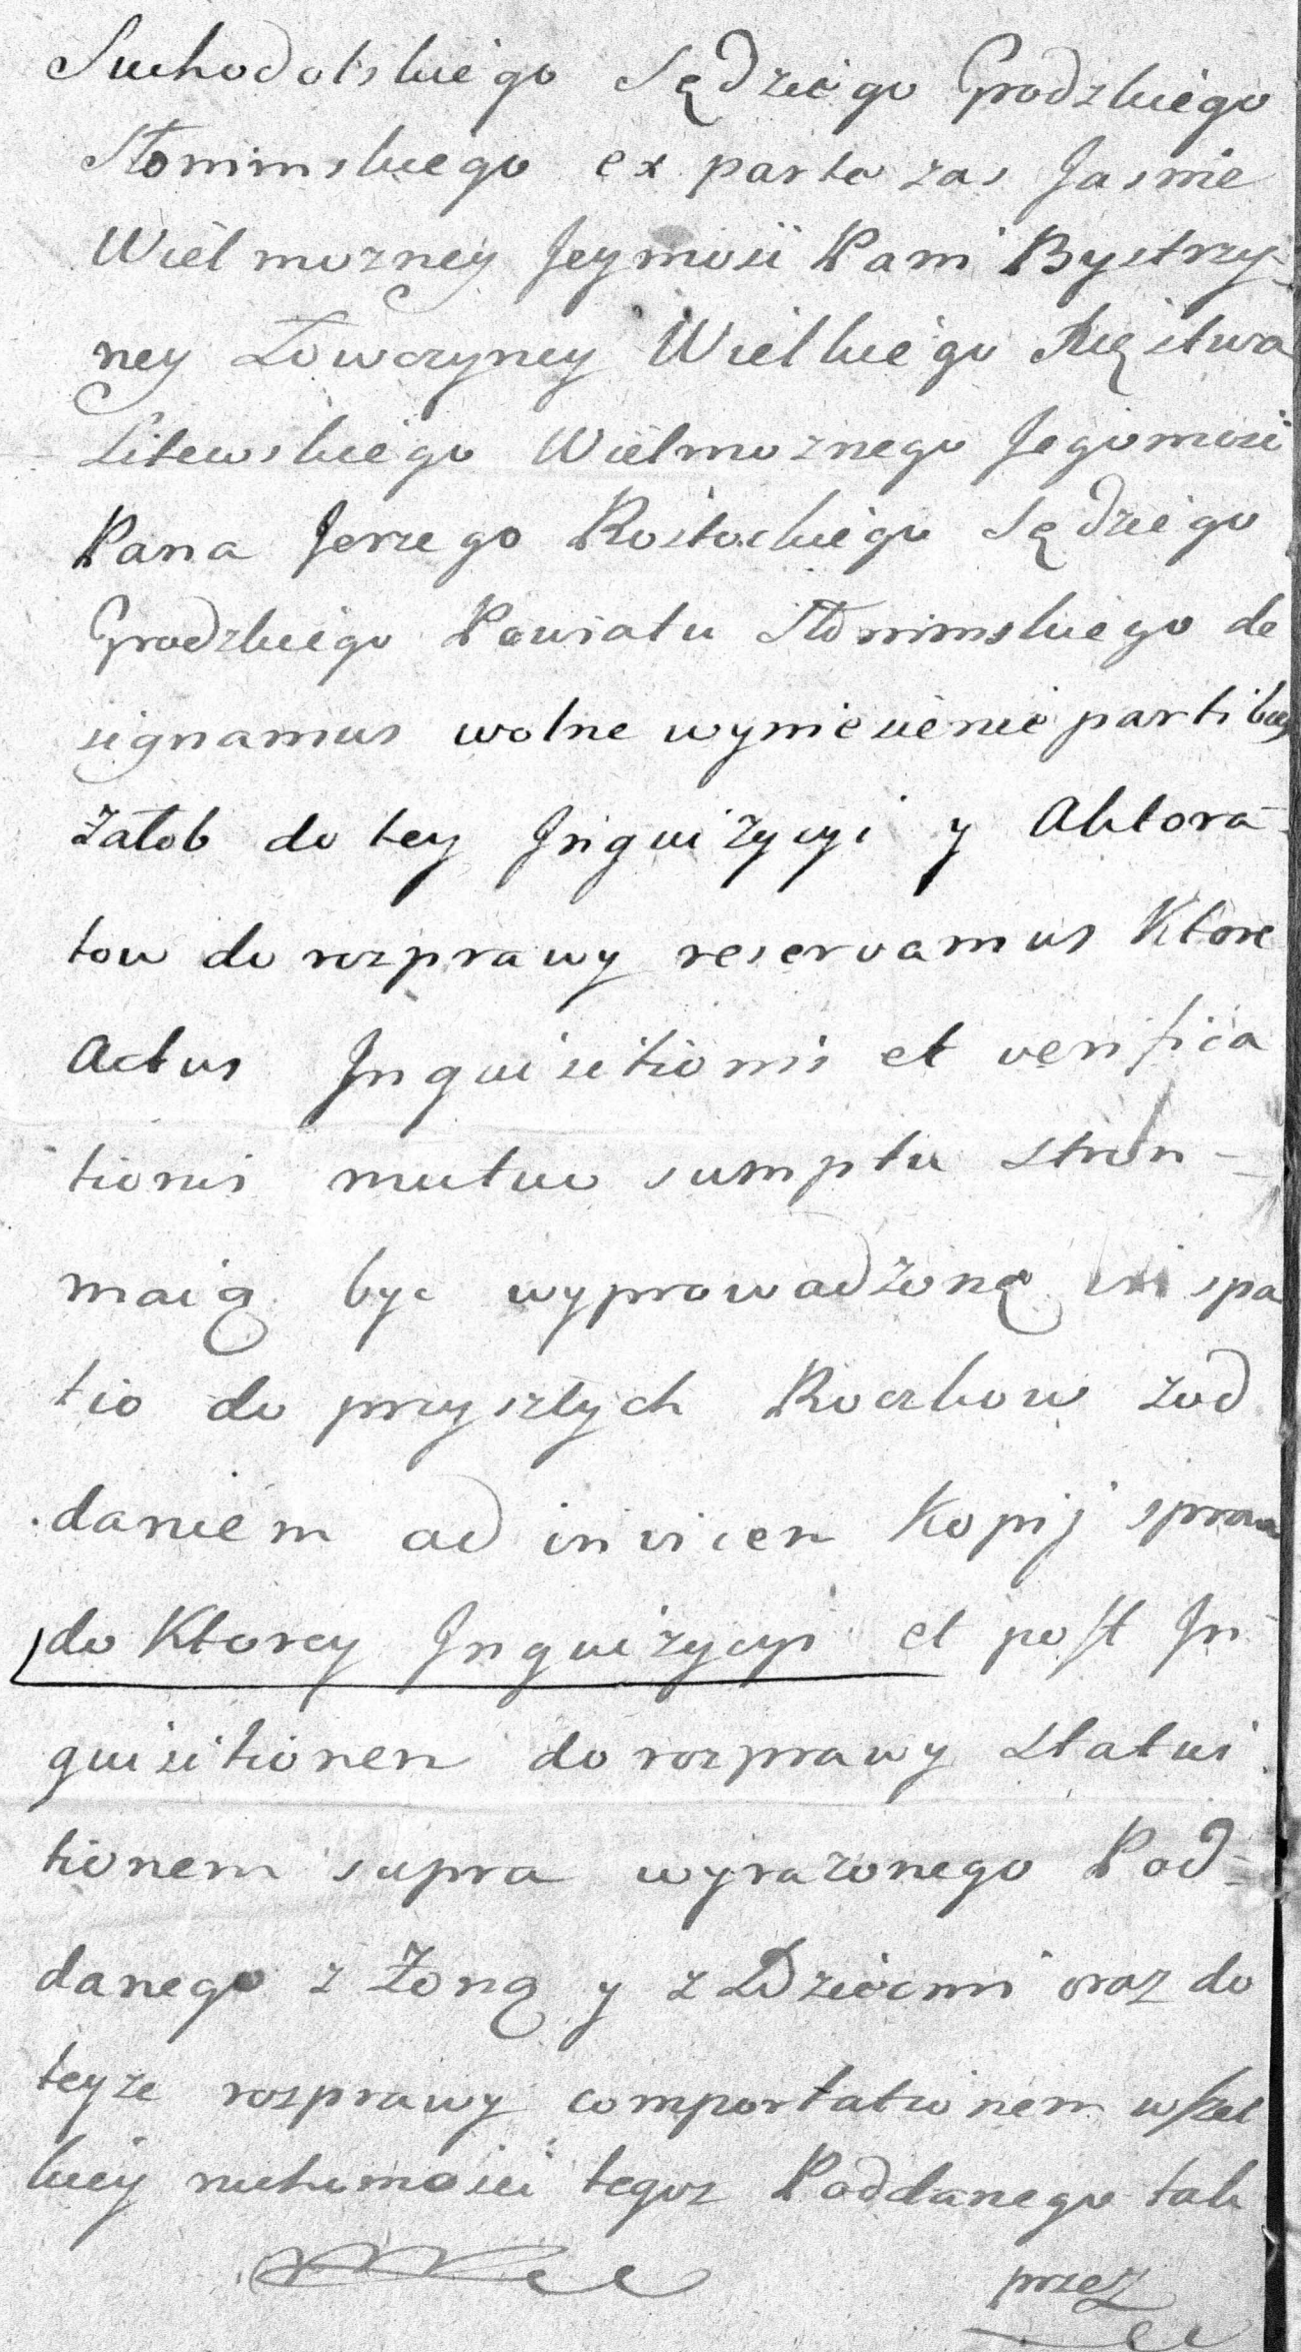 Suchodolskiego Sędziego Grodzkiego
Słonimskiego ex parte zas Jasnie
Wielmozney Jeymosci Pani Bystrzy-
ney Łowczyney Wielkiego Xięstwa
Litewskiego Wielmoznego Jegomosci
Pana Jerzego Rostockiego Sędziego
Grodzkiego Powiatu Słonimskiego de
signamus wolne wyniesienie partibus
Załob do tey Jnquizycyi y Aktora-
tow do rozprawy reservamus Ktore
Actus Jnquisitionis et verifica
tionis mutuo sumptu stron-
maią byc wyprowadżoną in spa
tio do przyszłych Roczkow zod
daniem ad invicem Kopij
do Ktorey Jnquizycyi et post Jn
quisitionem do rozprawy Statui
tionem supra wyrazonego Pod-
danego z Żoną y z Dziecmi oraz do
teyze rozprawy comportationem wszel
kiey ruchomosci tegoz Poddanego tak
przez